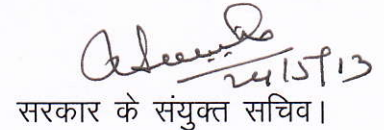 24/5/13
सरकार के संयुक्त सचिव।